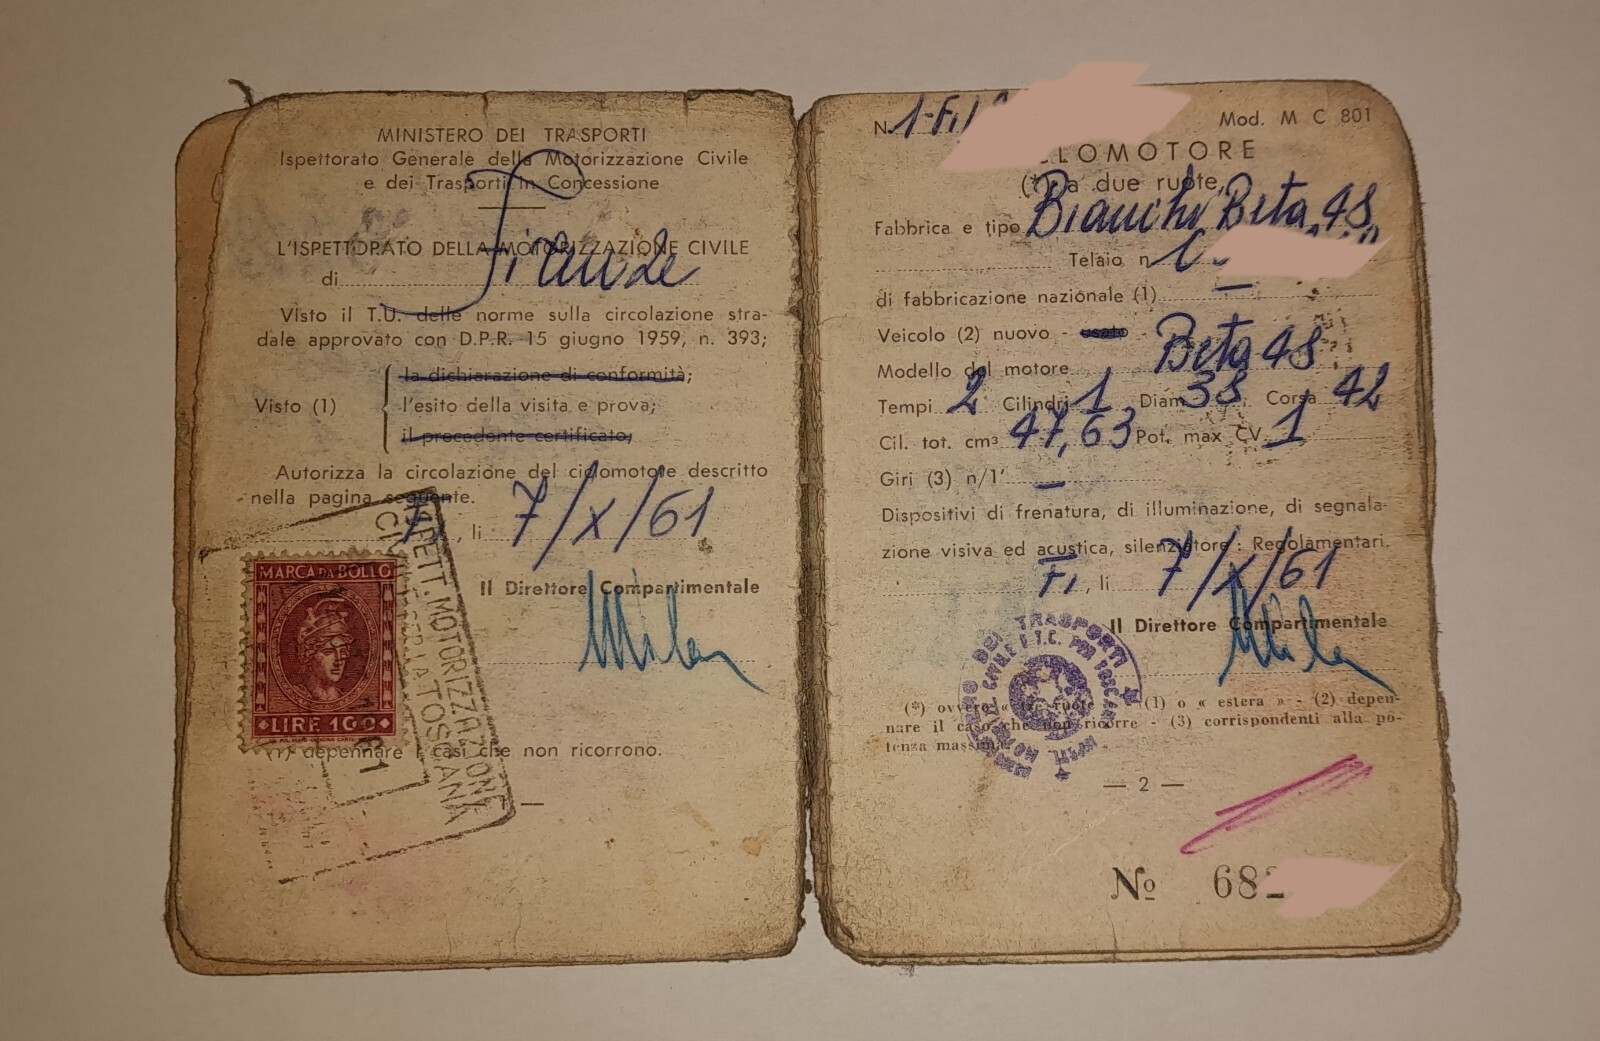 MINISTERO DEI TRASPORTI
Ispettorato Generale della Motorizzazione Civile
e dei Trasporti in Concessione
L'ISPETTORATO DELLA MOTORIZZAZIONE CIVILE
di Firenze
Visto il T.U. delle norme sulla circolazione stra-
dale approvato con D.P.R. 15 giugno 1959, n. 393;
la dichiarazione di conformità;
Visto (1) l'esito della visita e prova;
il precedente certificato;
Autorizza la circolazione del ciclomotore descritto
nella pagina seguente.
, li 7/X/61
Il Direttore Compartimentale
MARCA DA BOLLO
LIRE 100
ISPETT. MOTORIZZAZIONE
CIVILE PER LA TOSCANA
(1) depennare i casi che non ricorrono.
N. 1-Fi/ Mod. M C 801
CLOMOTORE
(*) a due ruote,
Fabbrica e tipo Bianchi Beta 48
Telaio n.
di fabbricazione nazionale (1) —
Veicolo (2) nuovo - usato
Modello del motore Beta 48
Tempi 2 Cilindri 1 Diam 38 Corsa 42
Cil. tot. cm³ 47,63 Pot. max CV 1
Giri (3) n/1' —
Dispositivi di frenatura, di illuminazione, di segnala-
zione visiva ed acustica, silenziatore: Regolamentari.
Fi, li 7/X/61
Il Direttore Compartimentale
DEI TRASPORTI
(*) ovvero « tre ruote » (1) o « estera » - (2) depen-
nare il caso che non ricorre - (3) corrispondenti alla po-
tenza massima.
— 2 —
No 682